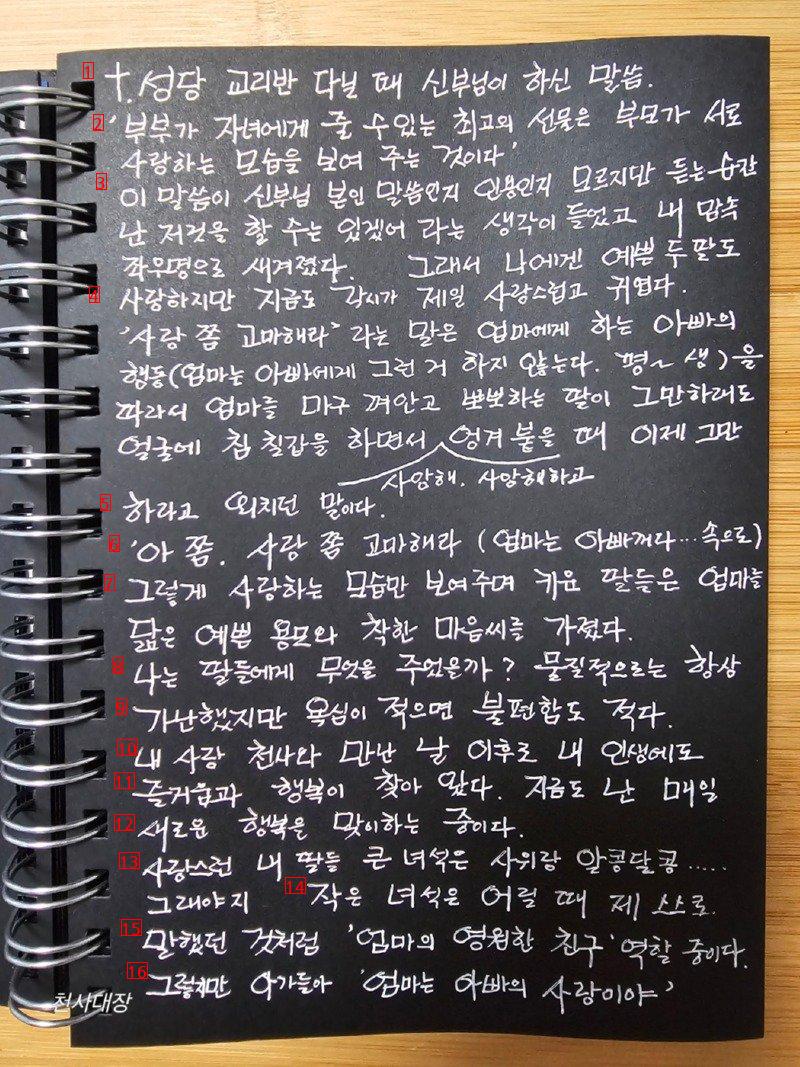 1 †. 성당 교리반 다닐 때 신부님이 하신 말씀.
2 '부부가 자녀에게 줄 수 있는 최고의 선물은 부모가 서로
사랑하는 모습을 보여 주는 것이다'
3 이 말씀이 신부님 본인 말씀인지 인용인지 모르지만 듣는 순간
난 저것을 할 수는 있겠어 라는 생각이 들었고 내 맘속
좌우명으로 새겨졌다. 그래서 나에겐 예쁜 두 딸도
4 사랑하지만 지금도 각시가 제일 사랑스럽고 귀엽다.
'사랑 쫌 고마해라' 라는 말은 엄마에게 하는 아빠의
행동(엄마는 아빠에게 그런 거 하지 않는다. 평~생)을
따라서 엄마를 마구 껴안고 뽀뽀하는 딸이 그만하래도
얼굴에 침 칠갑을 하면서 엉겨 붙을 때 이제 그만
사랑해. 사랑해하고
5 하라고 외치던 말이다.
6 '아 쫌. 사랑 쫌 고마해라 (엄마는 아빠꺼라...속으로)
7 그렇게 사랑하는 모습만 보여주며 키운 딸들은 엄마를
닮은 예쁜 용모와 착한 마음씨를 가졌다.
8 나는 딸들에게 무엇을 주었을까? 물질적으로는 항상
9 가난했지만 욕심이 적으면 불편함도 적다.
10 내 사랑 천사와 만난 날 이후로 내 인생에도
11 즐거움과 행복이 찾아 왔다. 지금도 난 매일
12 새로운 행복을 맞이하는 중이다.
13 사랑스런 내 딸들 큰 녀석은 사위랑 알콩달콩.....
그래야지 14 작은 녀석은 어릴 때 제 스스로
15 말했던 것처럼 '엄마의 영원한 친구' 역할 중이다.
16 그렇지만 아가들아 '엄마는 아빠의 사랑이야'
천사대장